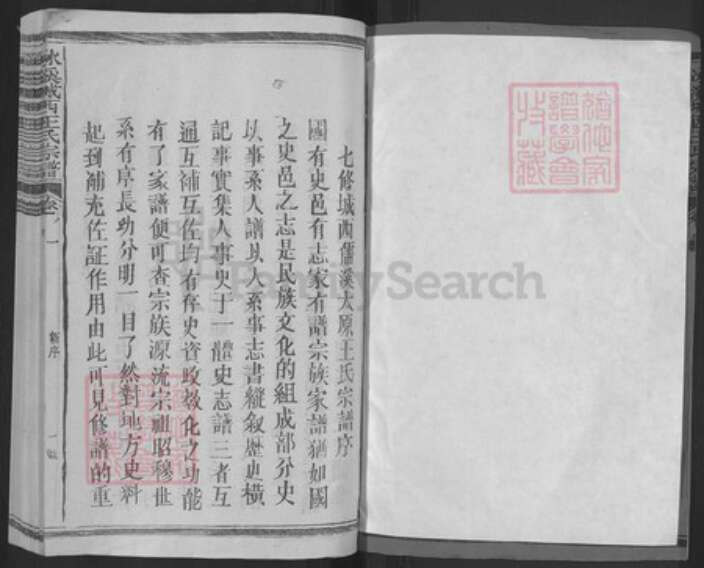 七修城西儒溪太原王氏宗譜序
國有史邑有志家有譜宗族家譜猶如國
之史邑之志是民族文化的組成部分史
以事系人譜以人系事志書縱叙歷史橫
記事實集人事史于一體史志譜三者互
通互補互佐均有存史資政教化之功能
有了家譜便可查宗族源流宗祖昭穆世
系有序長幼分明一目了然對地方史料
起到補充佐証作用由此可見修譜的重
城西王氏宗譜
新序
FamilySearch